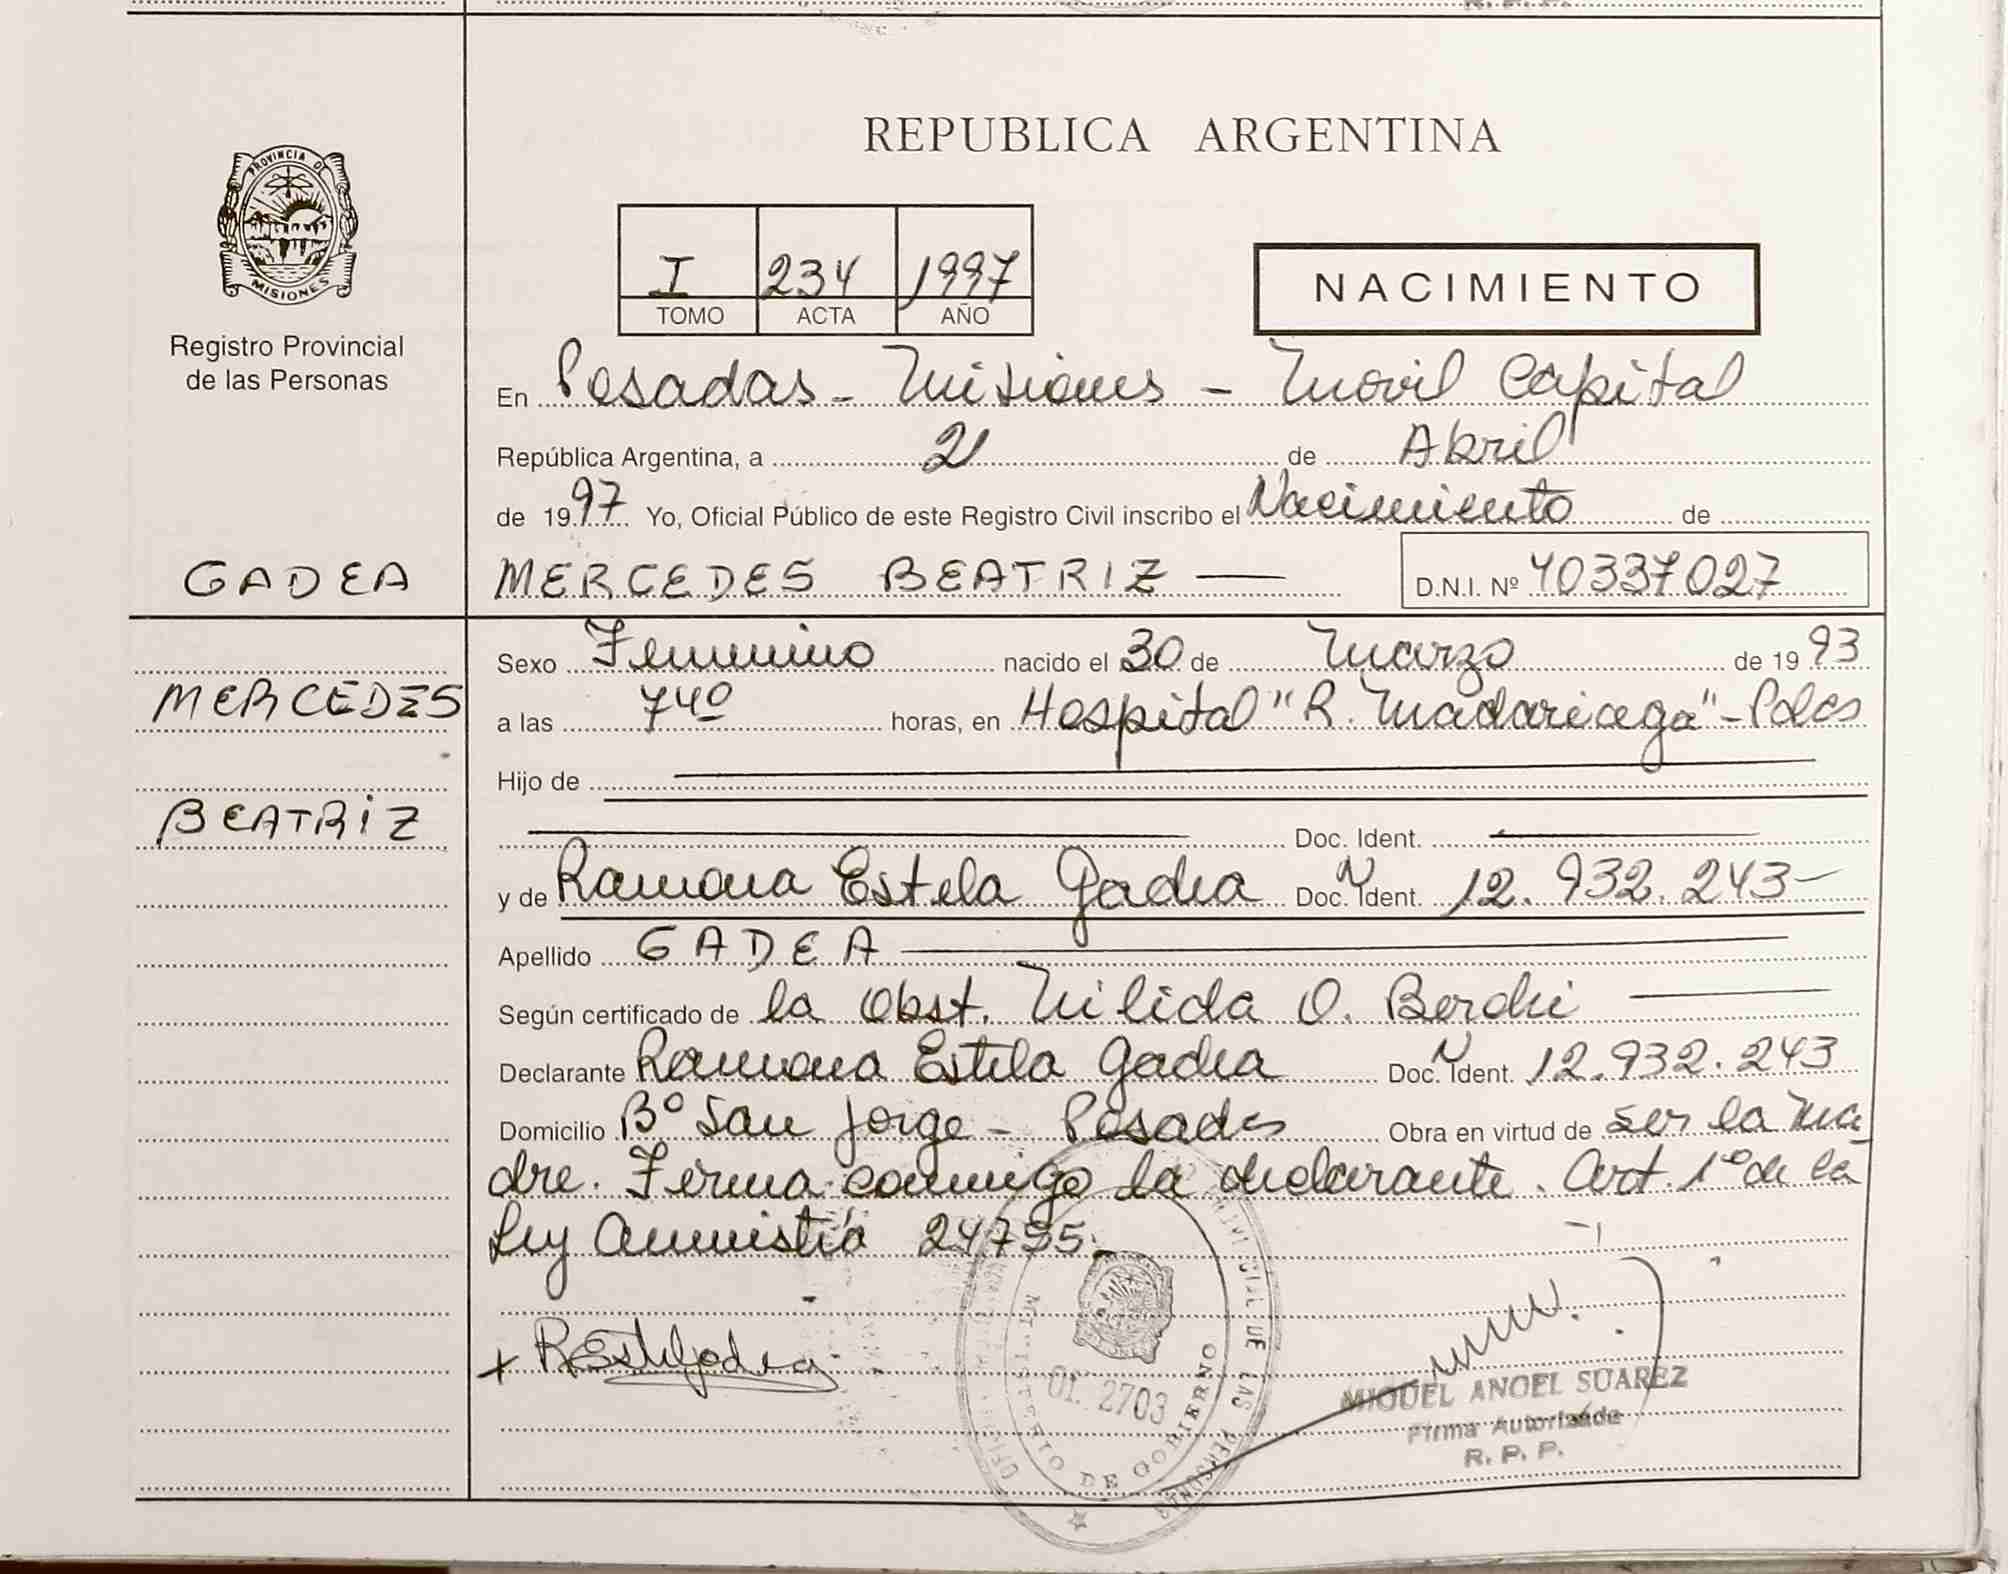 R. P. P.
REPUBLICA ARGENTINA
PROVINCIA DE
MISIONES
Registro Provincial
de las Personas
I 234 1997
TOMO ACTA AÑO
NACIMIENTO
En Posadas - Misiones - Movil Capital
República Argentina, a 21 de Abril
de 1997 Yo, Oficial Público de este Registro Civil inscribo el Nacimiento de
GADEA MERCEDES BEATRIZ D.N.I. Nº 40337027
Sexo Femenino nacido el 30 de Marzo de 1993
MERCEDES
a las 740 horas, en Hospital "R. Madariaga" - Pdas
Hijo de
BEATRIZ
Doc. Ident.
y de Ramona Estela Gadea Doc. Ident. 12.932.243-
Apellido GADEA
Según certificado de la Obst. Nilida O. Berchi
Declarante Ramona Estela Gadea Doc. Ident. 12.932.243
Domicilio Bº San Jorge - Posadas Obra en virtud de ser la ma
dre. Firma conmigo la declarante. Art. 1º de la
Ley Amnistía 24755.
REstelGadea
MINISTERIO DE GOBIERNO
OF. 2703
MIGUEL ANGEL SUAREZ
Firma Autorizada
R. P. P.